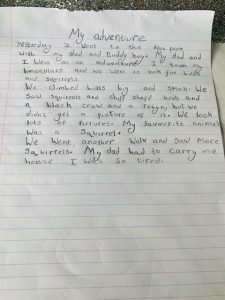 My adventure
Yesterday I went to the park
with my dad and Buddy boy. My dad and
I went on an adventure. I took my
binoculars and we went to look for birds
and squirrels.
We climbed hills big and small. We
saw squirrels and birds and
a black crow and a but we
didn't get a picture of it. We took
lots of Pictures. My favourite animal
was a Squirrel.
We went another walk and saw more
squirrels. My dad had to carry me
home I was so tired.